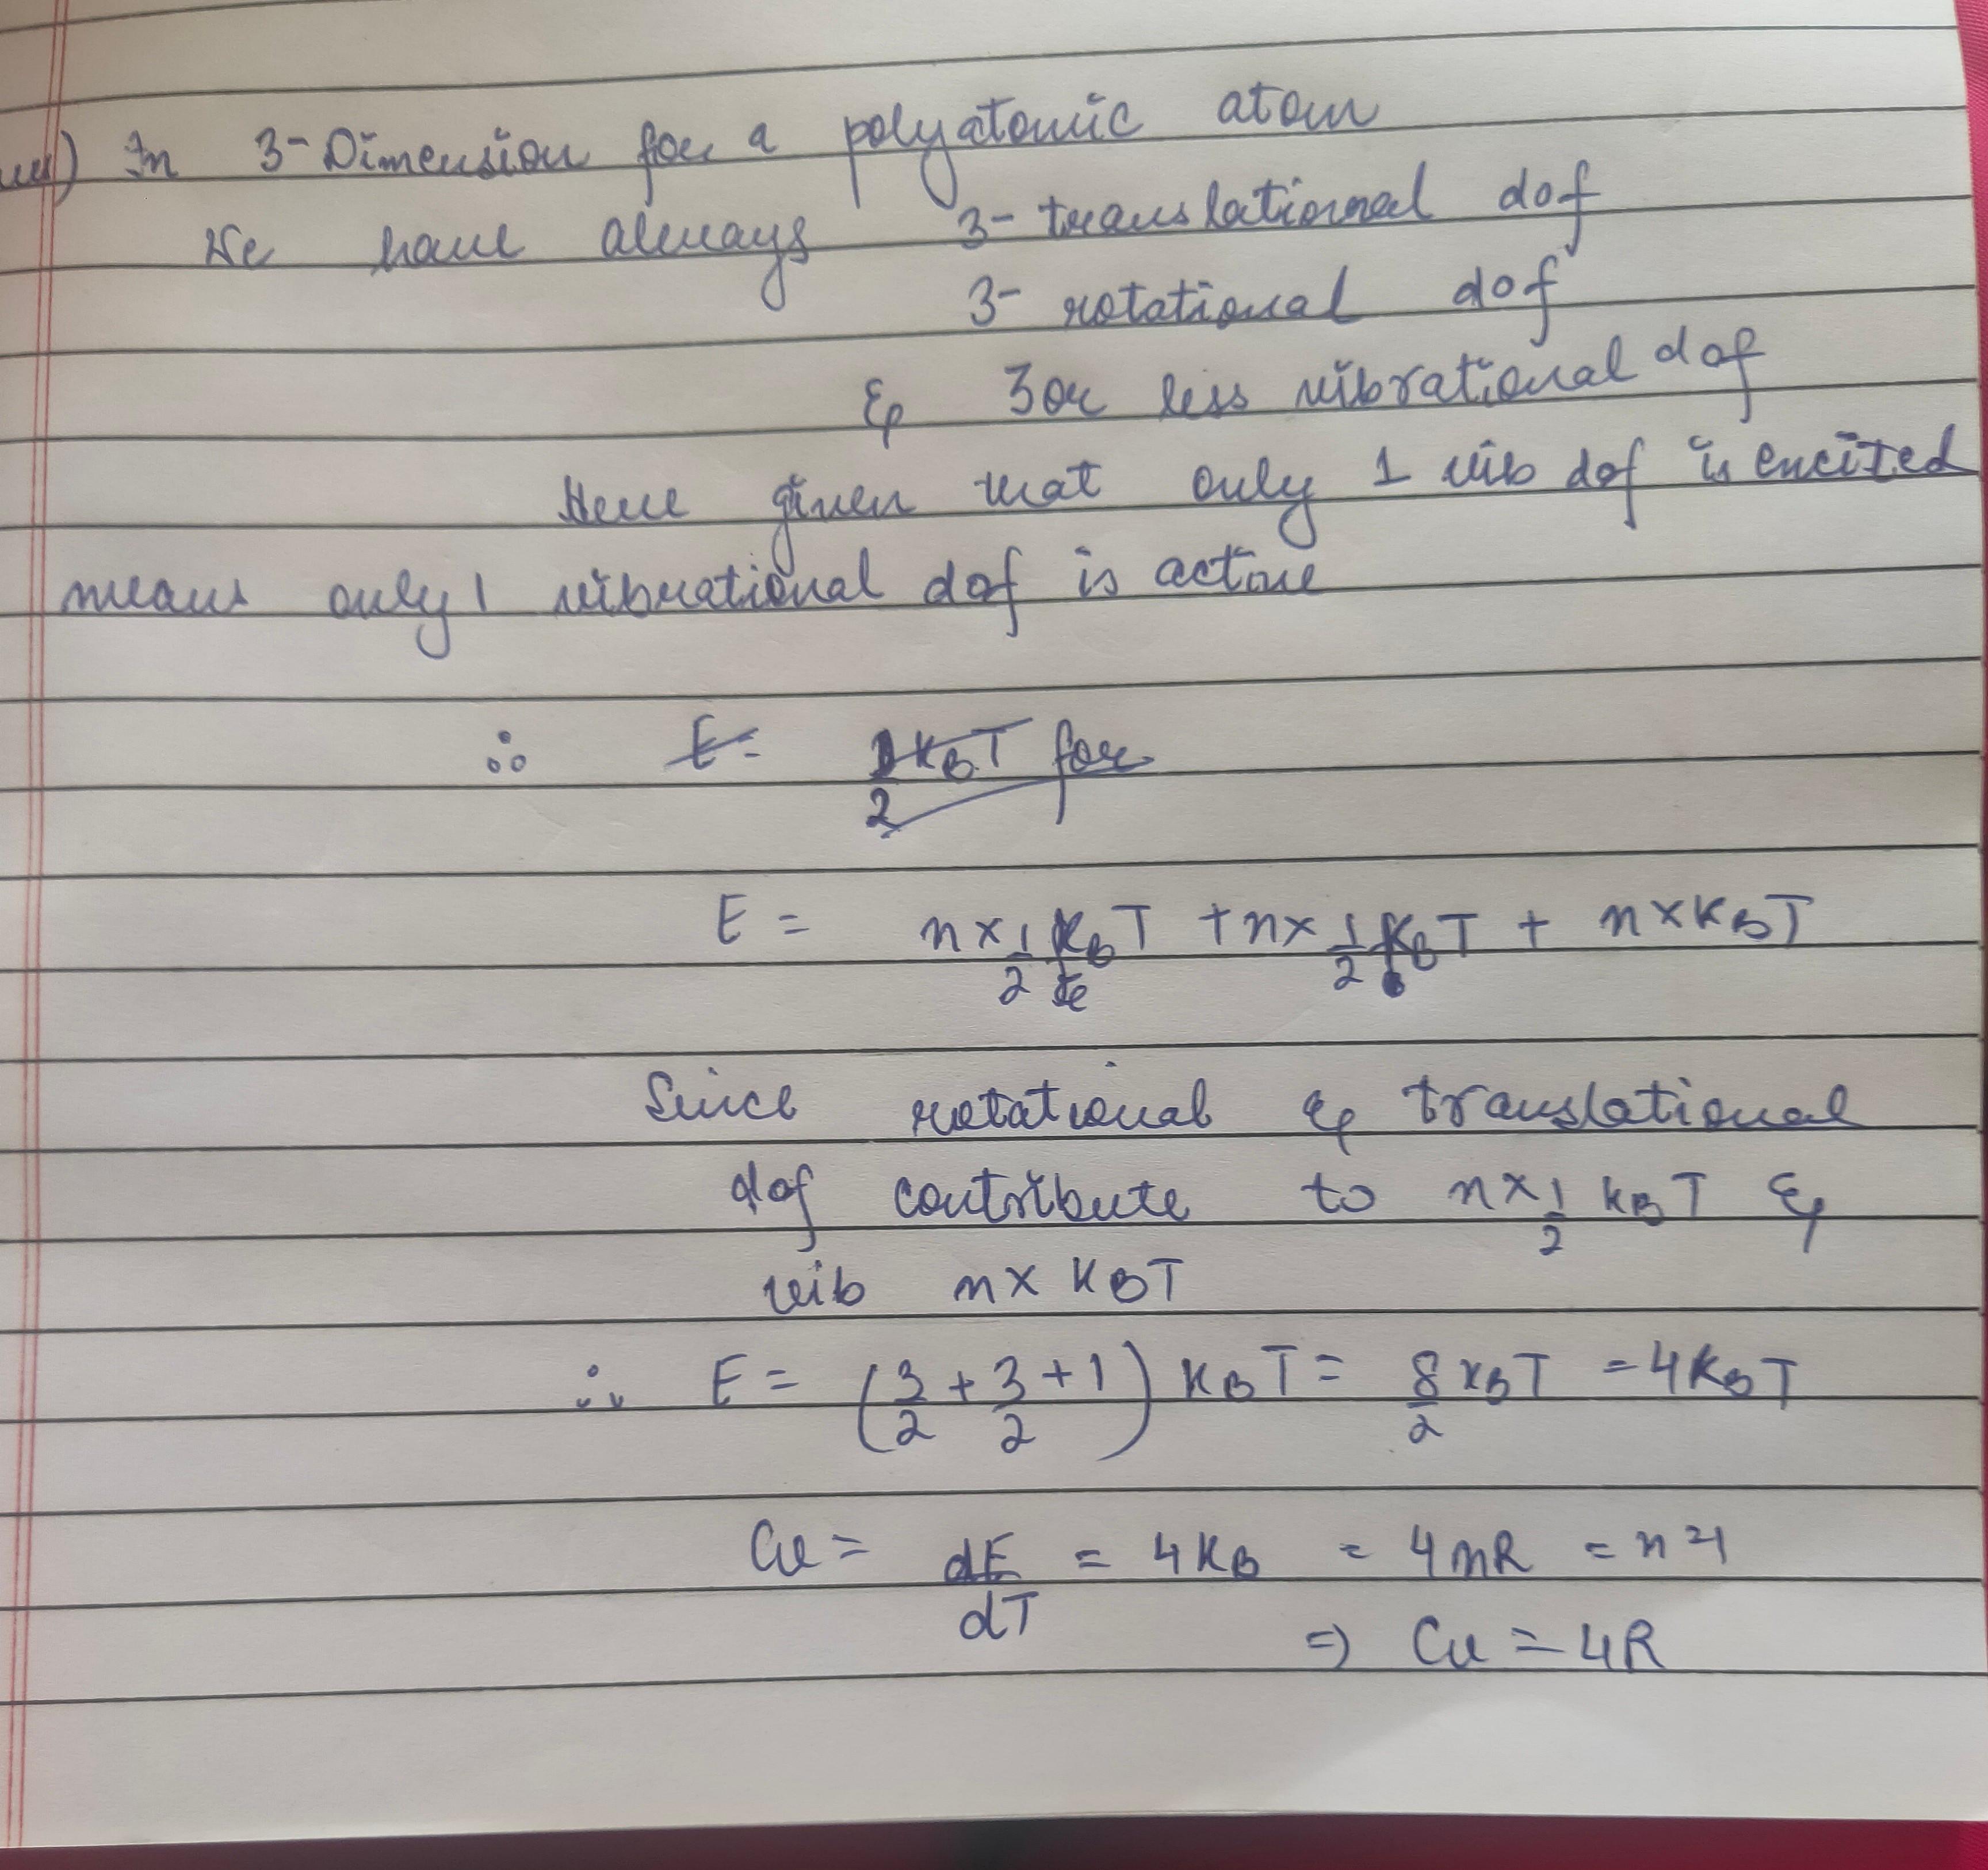 In 3-Dimension for a polyatomic atom
We have always 3- translational dof
3- rotational dof
& 3 or less vibrational dof
Here given that only 1 vib dof is excited
means only 1 vibrational dof is active
∴ E = 1/2 KBT for
E = n × 1/2 KBT + n × 1/2 KBT + n × KBT
Since rotational & translational
dof contribute to n × 1/2 KBT &
vib n × KBT
∴ E = (3/2 + 3/2 + 1) KBT = 8/2 KBT = 4KBT
Cv = dE/dT = 4KB = 4nR = n=1
⇒ Cv = 4R